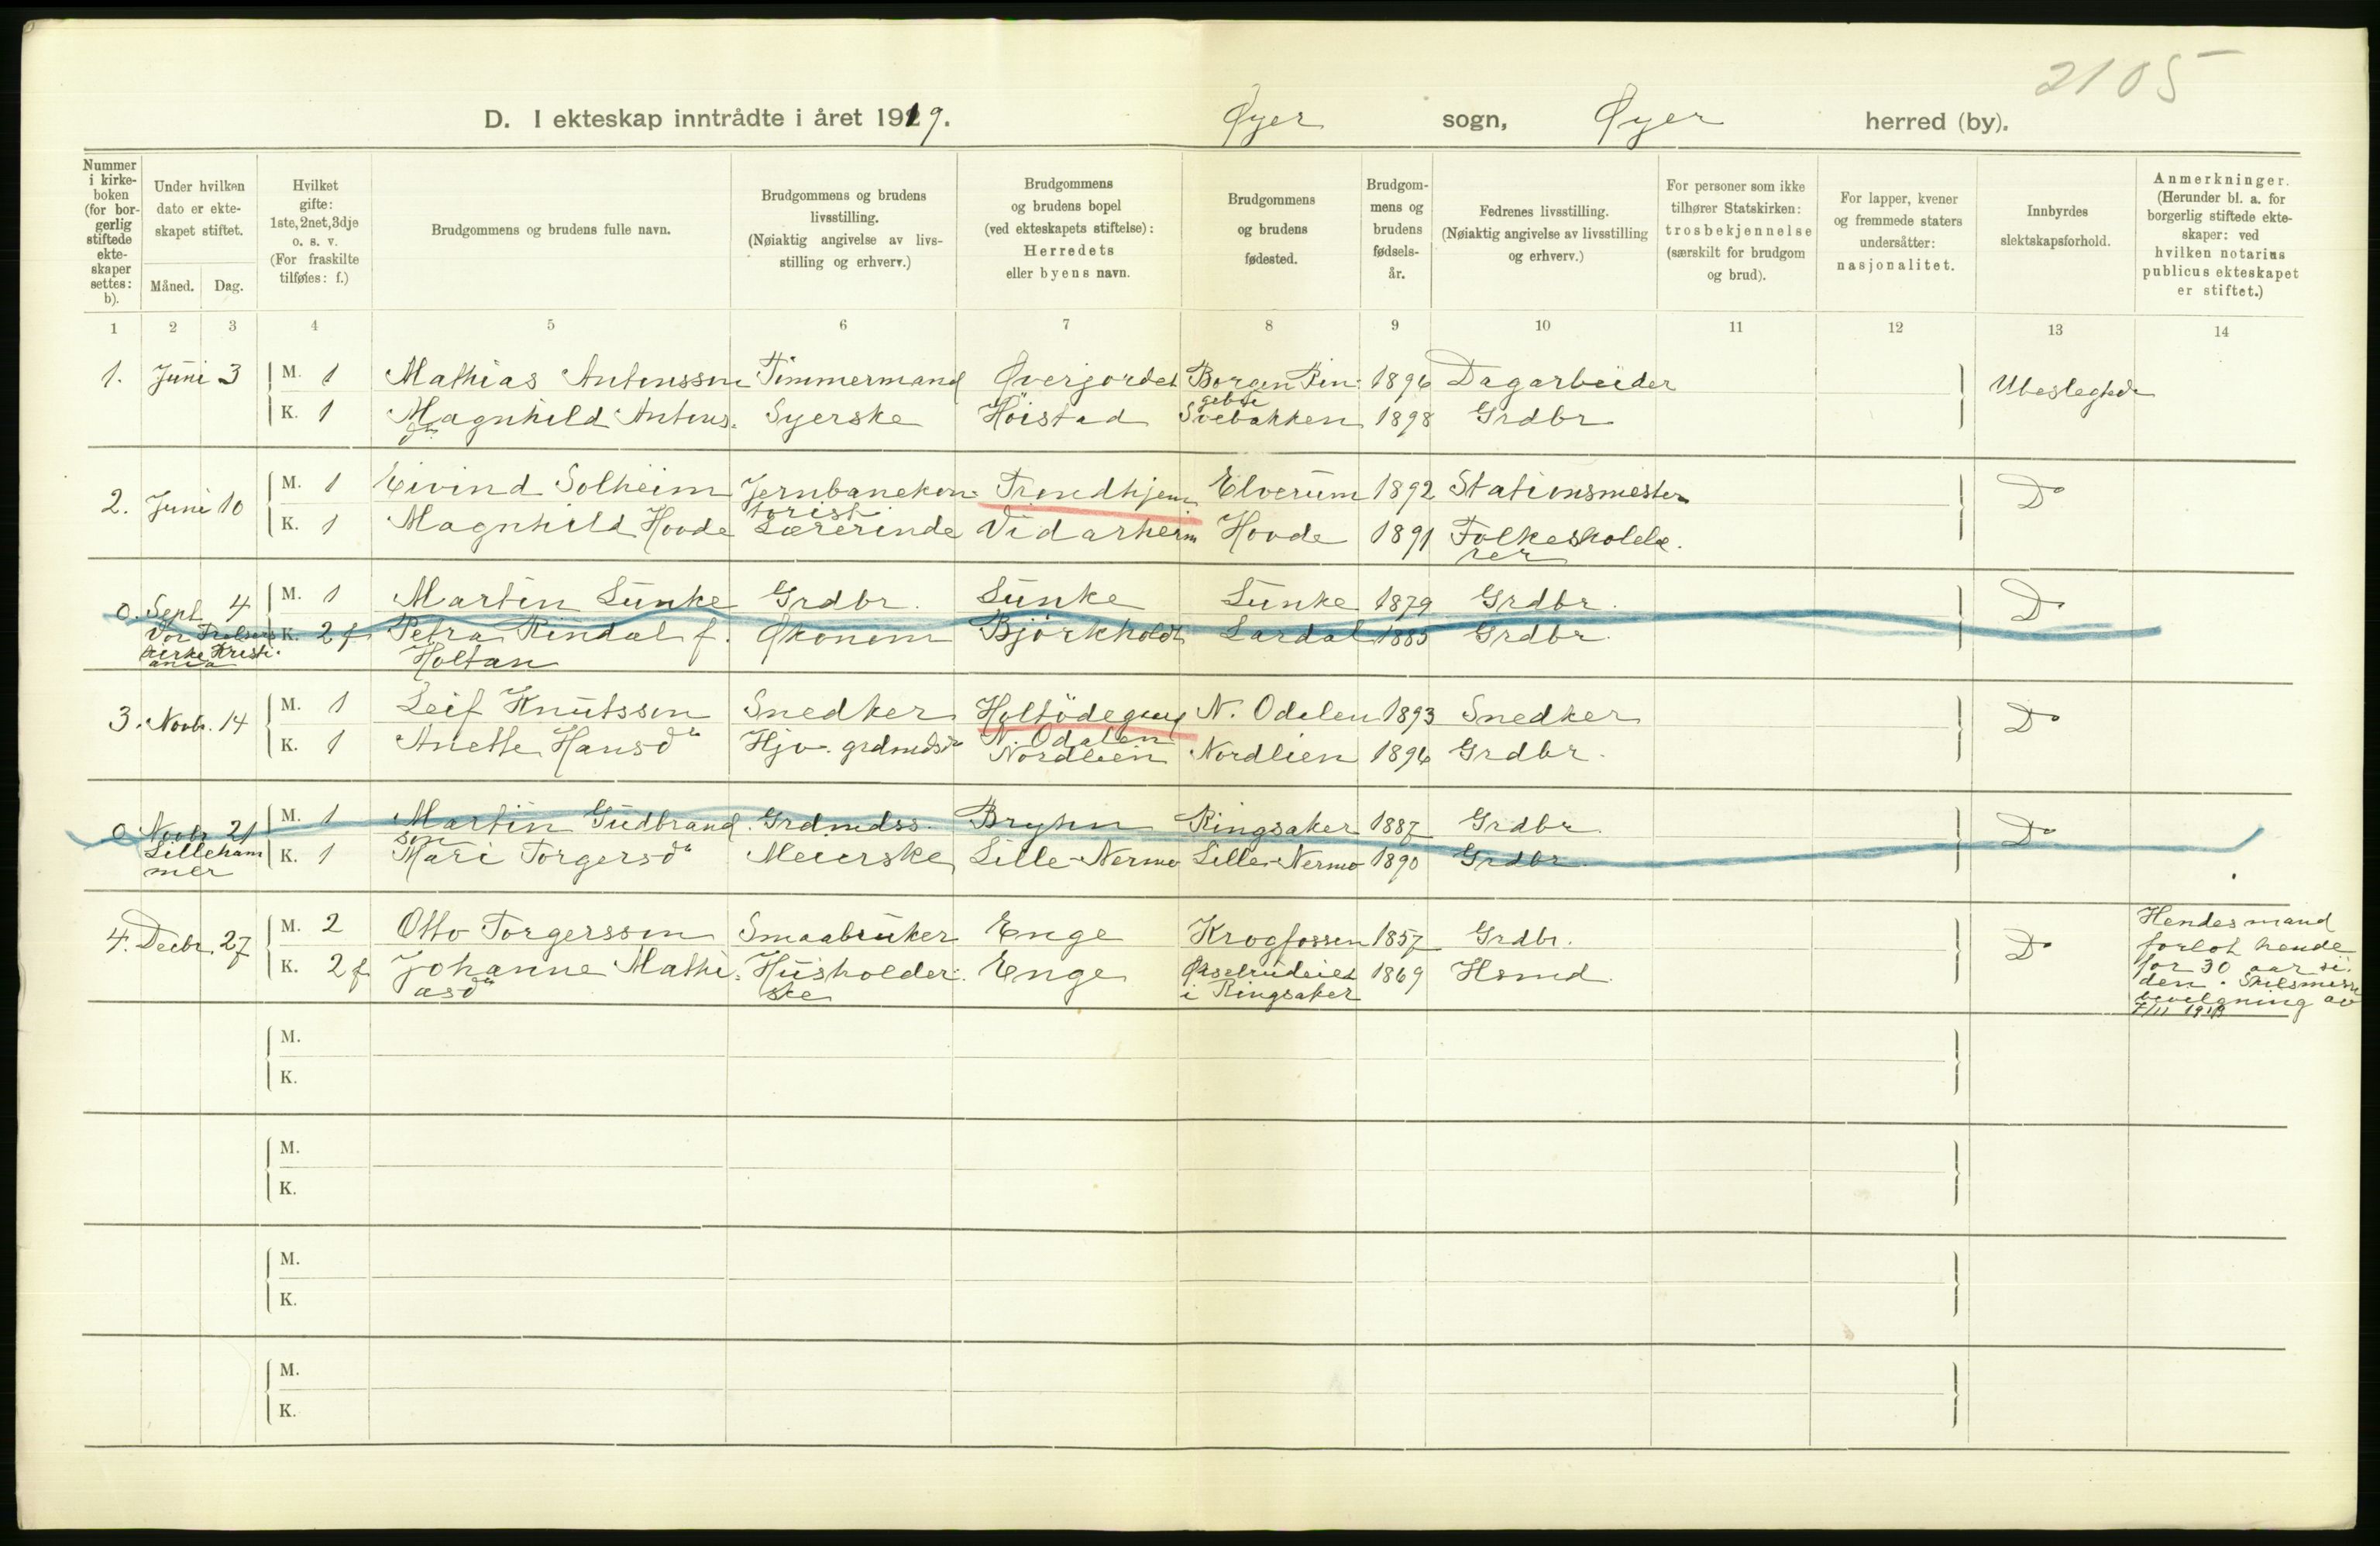 2105
D. I ekteskap inntrådte i året 1919. Øyer sogn, Øyer herred (by).
Nummer i kirke-boken (for bor-gerlig stiftede ekte-skaper settes: b).
Under hvilken dato er ekte-skapet stiftet.
Måned. Dag.
Hvilket gifte: 1ste, 2net, 3dje o. s. v. (For fraskilte tilføies: f.)
Brudgommens og brudens fulle navn.
Brudgommens og brudens livsstilling. (Nøiaktig angivelse av livs-stilling og erhverv.)
Brudgommens og brudens bopel (ved ekteskapets stiftelse): Herredets eller byens navn.
Brudgommens og brudens fødested.
Brudgom-mens og brudens fødsels-år.
Fedrenes livsstilling. (Nøiaktig angivelse av livsstilling og erhverv.)
For personer som ikke tilhører Statskirken: trosbekjennelse (særskilt for brudgom og brud).
For lapper, kvener og fremmede staters undersåtter: nasjonalitet.
Innbyrdes slektskapsforhold.
Anmerkninger. (Herunder bl. a. for borgerlig stiftede ekte-skaper: ved hvilken notarius publicus ekteskapet er stiftet.)
1 2 3 4 5 6 7 8 9 10 11 12 13 14
1. Juni 3 M. 1 Mathias Antonsson Timmermand Øverjordet Borgen Rin- 1896 Dagarbeider Ubeslegtede
gebu
K. 1 Magnhild Antons. Syerske Höistad Svebakken 1898 Grdbr
dr
2. Juni 10 M. 1 Eivind Solheim Jernbanekon- Trondhjem Elverum 1892 Stationsmester Do
torist
K. 1 Magnhild Hovde Lærerinde Vidarheim Hovde 1891 Folkeskolelæ.
rer
0. Sept. 4 M. 1 Martin Lunke Grdbr. Lunke Lunke 1879 Grdbr. Do
Vor Frelsers K. 2 f Petra Rindal f. Økonom Björkholdt Lardal 1885 Grdbr.
kirke Kristi-
ania Holtan
3. Novbr. 14 M. 1 Leif Knutsson Snedker Holtödegaard N. Odalen 1893 Snedker Do
N. Odalen
K. 1 Anette Hansdr Hjv. grdmdsdr Nordlien Nordlien 1896 Grdbr.
0 Novbr 21 M. 1 Martin Gudbrand. Grdmdss. Bryhn Ringsaker 1887 Grdbr. Do
son
Lilleham K. 1 Mari Torgersdr Meierske Lille-Nermo Lille-Nermo 1890 Grdbr.
mer
4. Decbr. 27 M. 2 Otto Torgersson Smaabruker Enge Krogfossen 1857 Grdbr. Do
K. 2 f Johanne Mathi- Husholder- Enge 1869 Hsmd.
asdr ske i Ringsaker
Hendes mand
forlot hende
for 30 aar si-
den. Skilsmisse
bevilgning av
7/11 1918
M.
K.
M.
K.
M.
K.
M.
K.